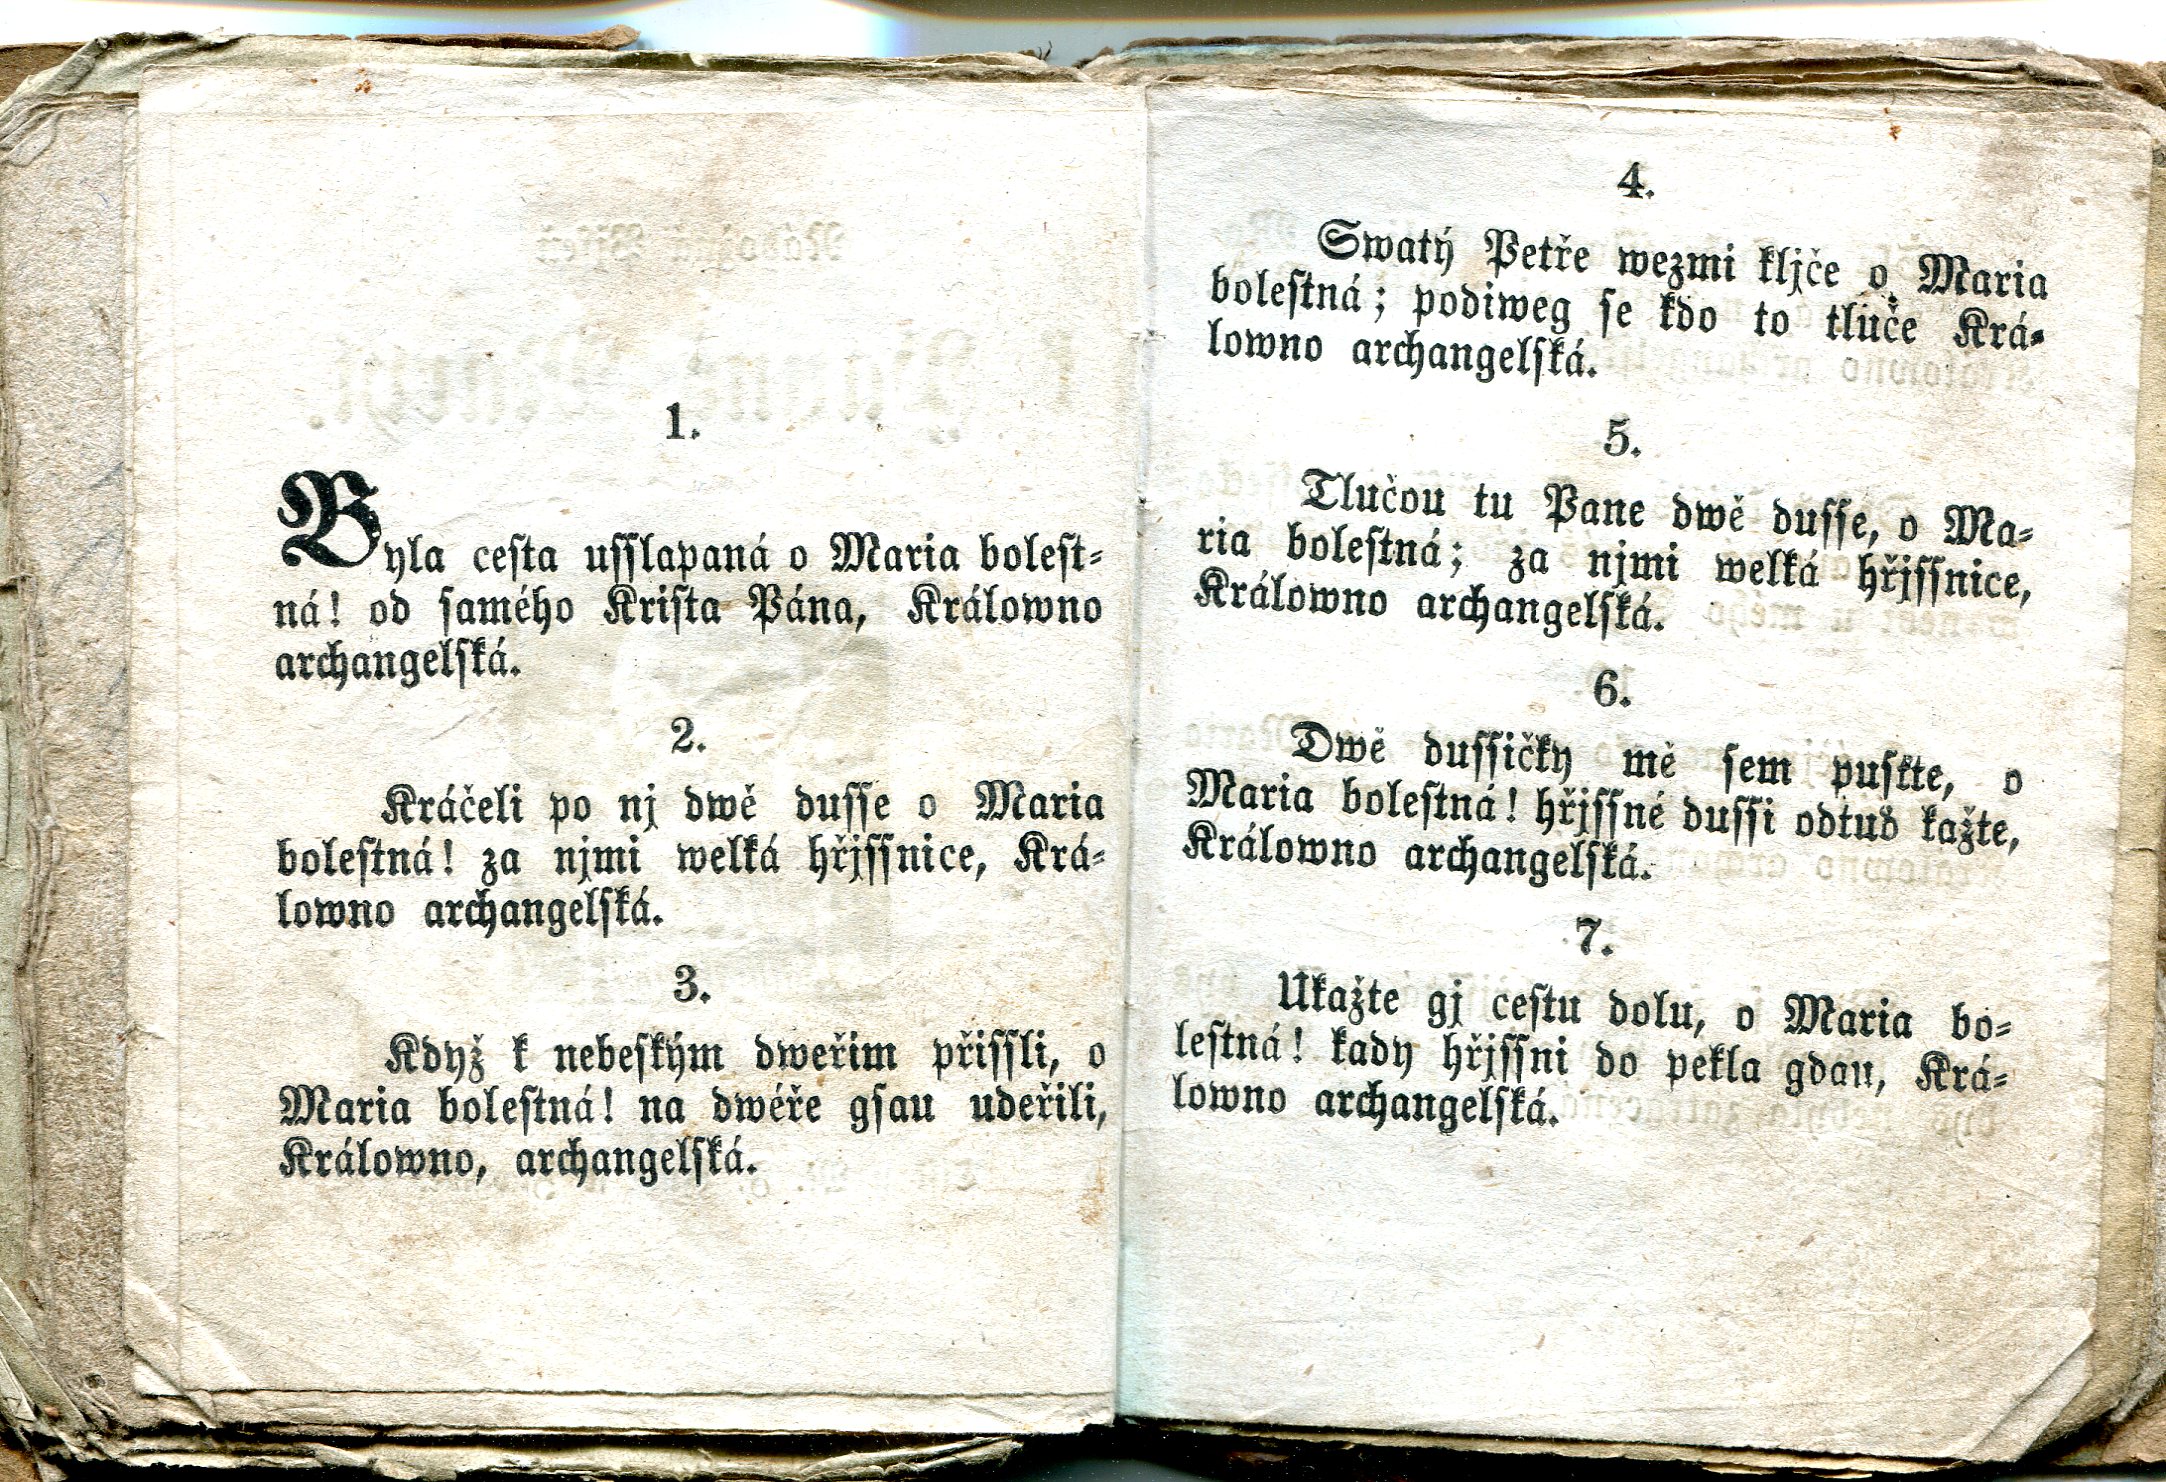 1.
Byla cesta usslapaná o Maria bolest-
ná! od samého Krista Pána, Králowno
archangelská.
2.
Kráčeli po nj dwě dusse o Maria
bolestná! za njmi welká hřjssnice, Krá-
lowno archangelská.
3.
Když k nebeským dweřim přissli, o
Maria bolestná! na dwéře gsau udeřili,
Králowno, archangelská.
4.
Swatý Petře wezmi kljče o Maria
bolestná; podiweg se kdo to tluče Krá-
lowno archangelská.
5.
Tlučou tu Pane dwě dusse, o Ma-
ria bolestná; za njmi welká hřjssnice,
Králowno archangelská.
6.
Dwě dussičky mě sem pustte, o
Maria bolestná! hřjssné dussi odtud kažte,
Králowno archangelská.
7.
Ukažte gj cestu dolu, o Maria bo-
lestná! kady hřjssni do pekla gdau, Krá-
lowno archangelská.